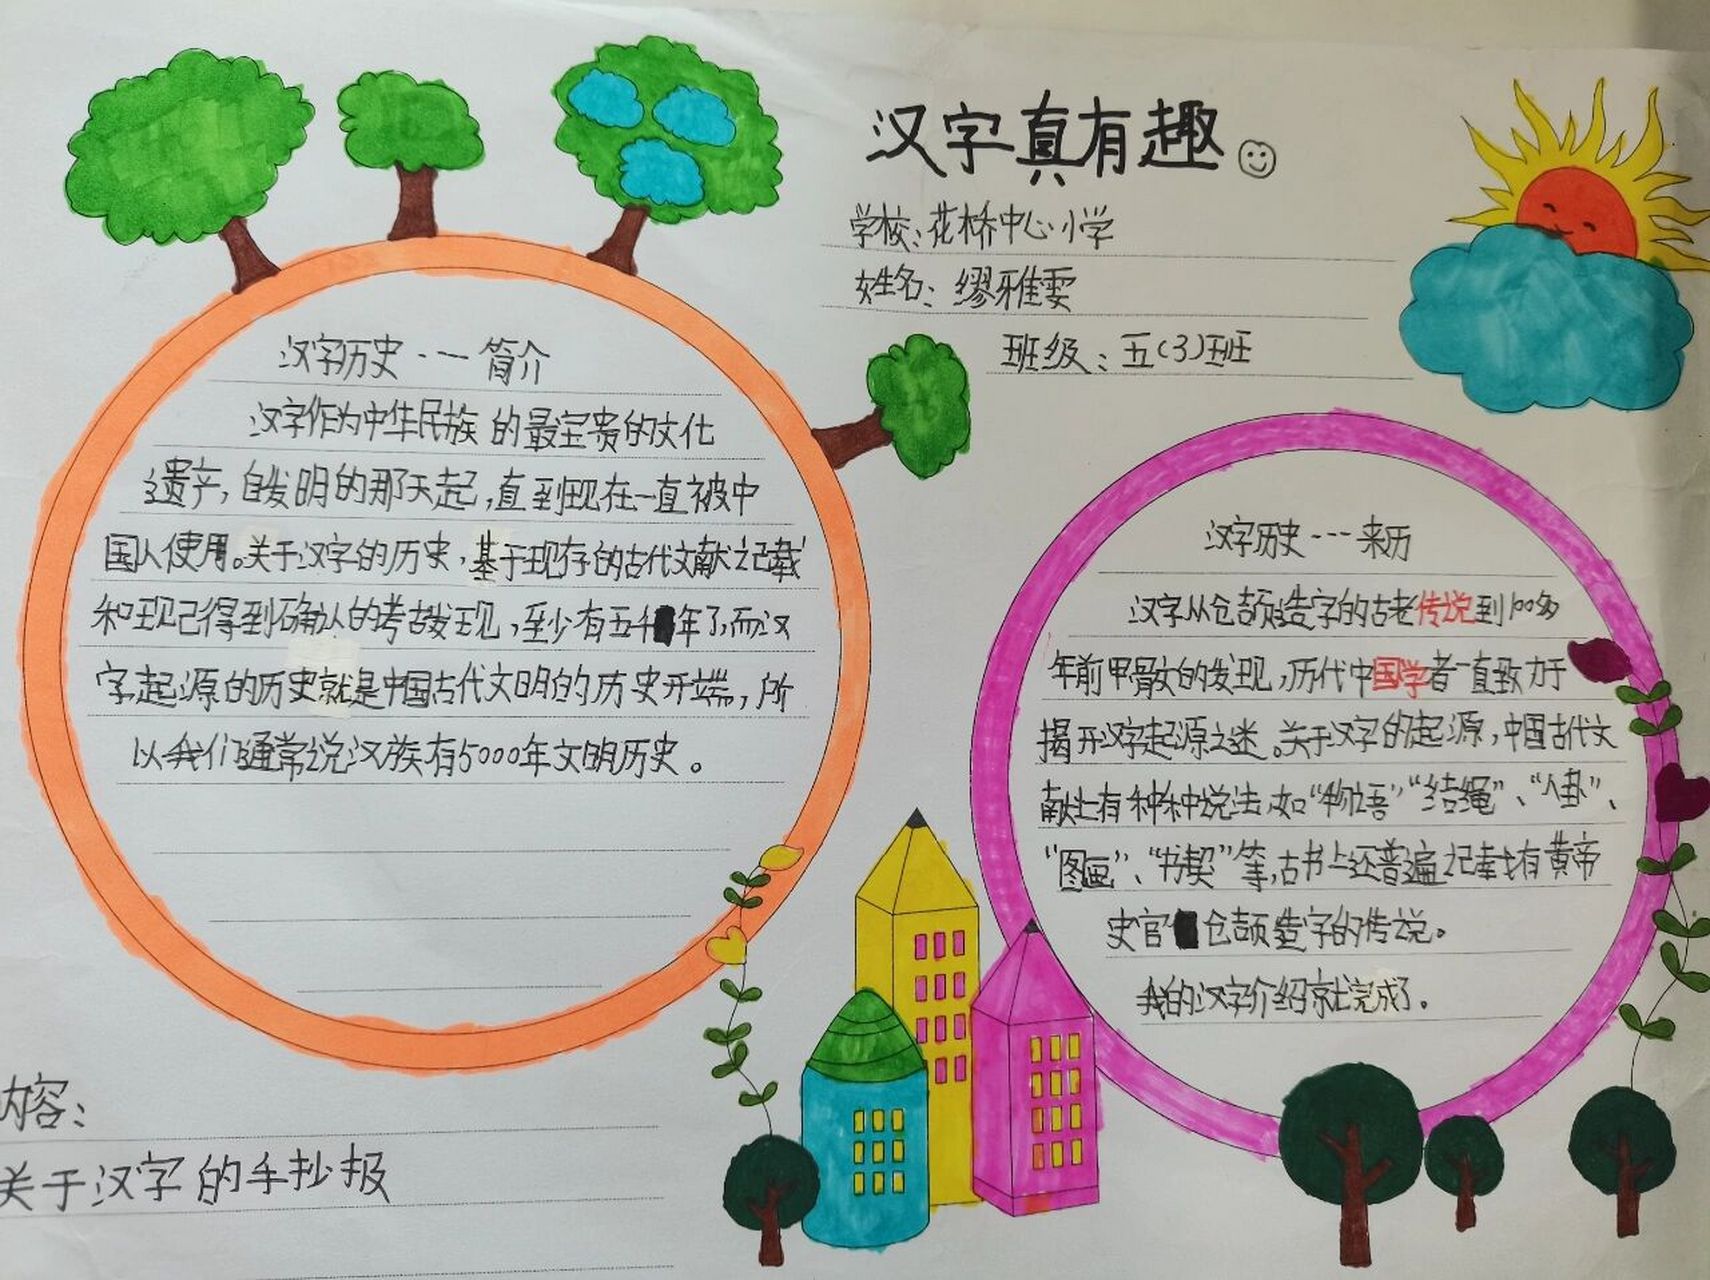 汉字真有趣
学校:花桥中心小学
姓名:缪雅雯
班级:五(3)班
汉字历史---简介
汉字作为中华民族的最宝贵的文化
遗产,自发明的那天起,直到现在一直被中
国人使用。关于汉字的历史,基于现存的古代文献之记载
和现已得到确认的考古发现,至少有五千年了,而汉
字起源的历史就是中国古代文明的历史开端,所
以我们通常说汉族有5000年文明历史。
汉字历史---来历
汉字从仓颉造字的古老传说到100多
年前甲骨文的发现,历代中国学者一直致力于
揭开汉字起源之迷。关于汉字的起源,中国古代文
献上有种种说法,如“物语”“结绳”、“八卦”、
“图画”、“书契”等,古书上还普遍记载有黄帝
史官仓颉造字的传说。
我的汉字介绍就完成了。
内容:
关于汉字的手抄报